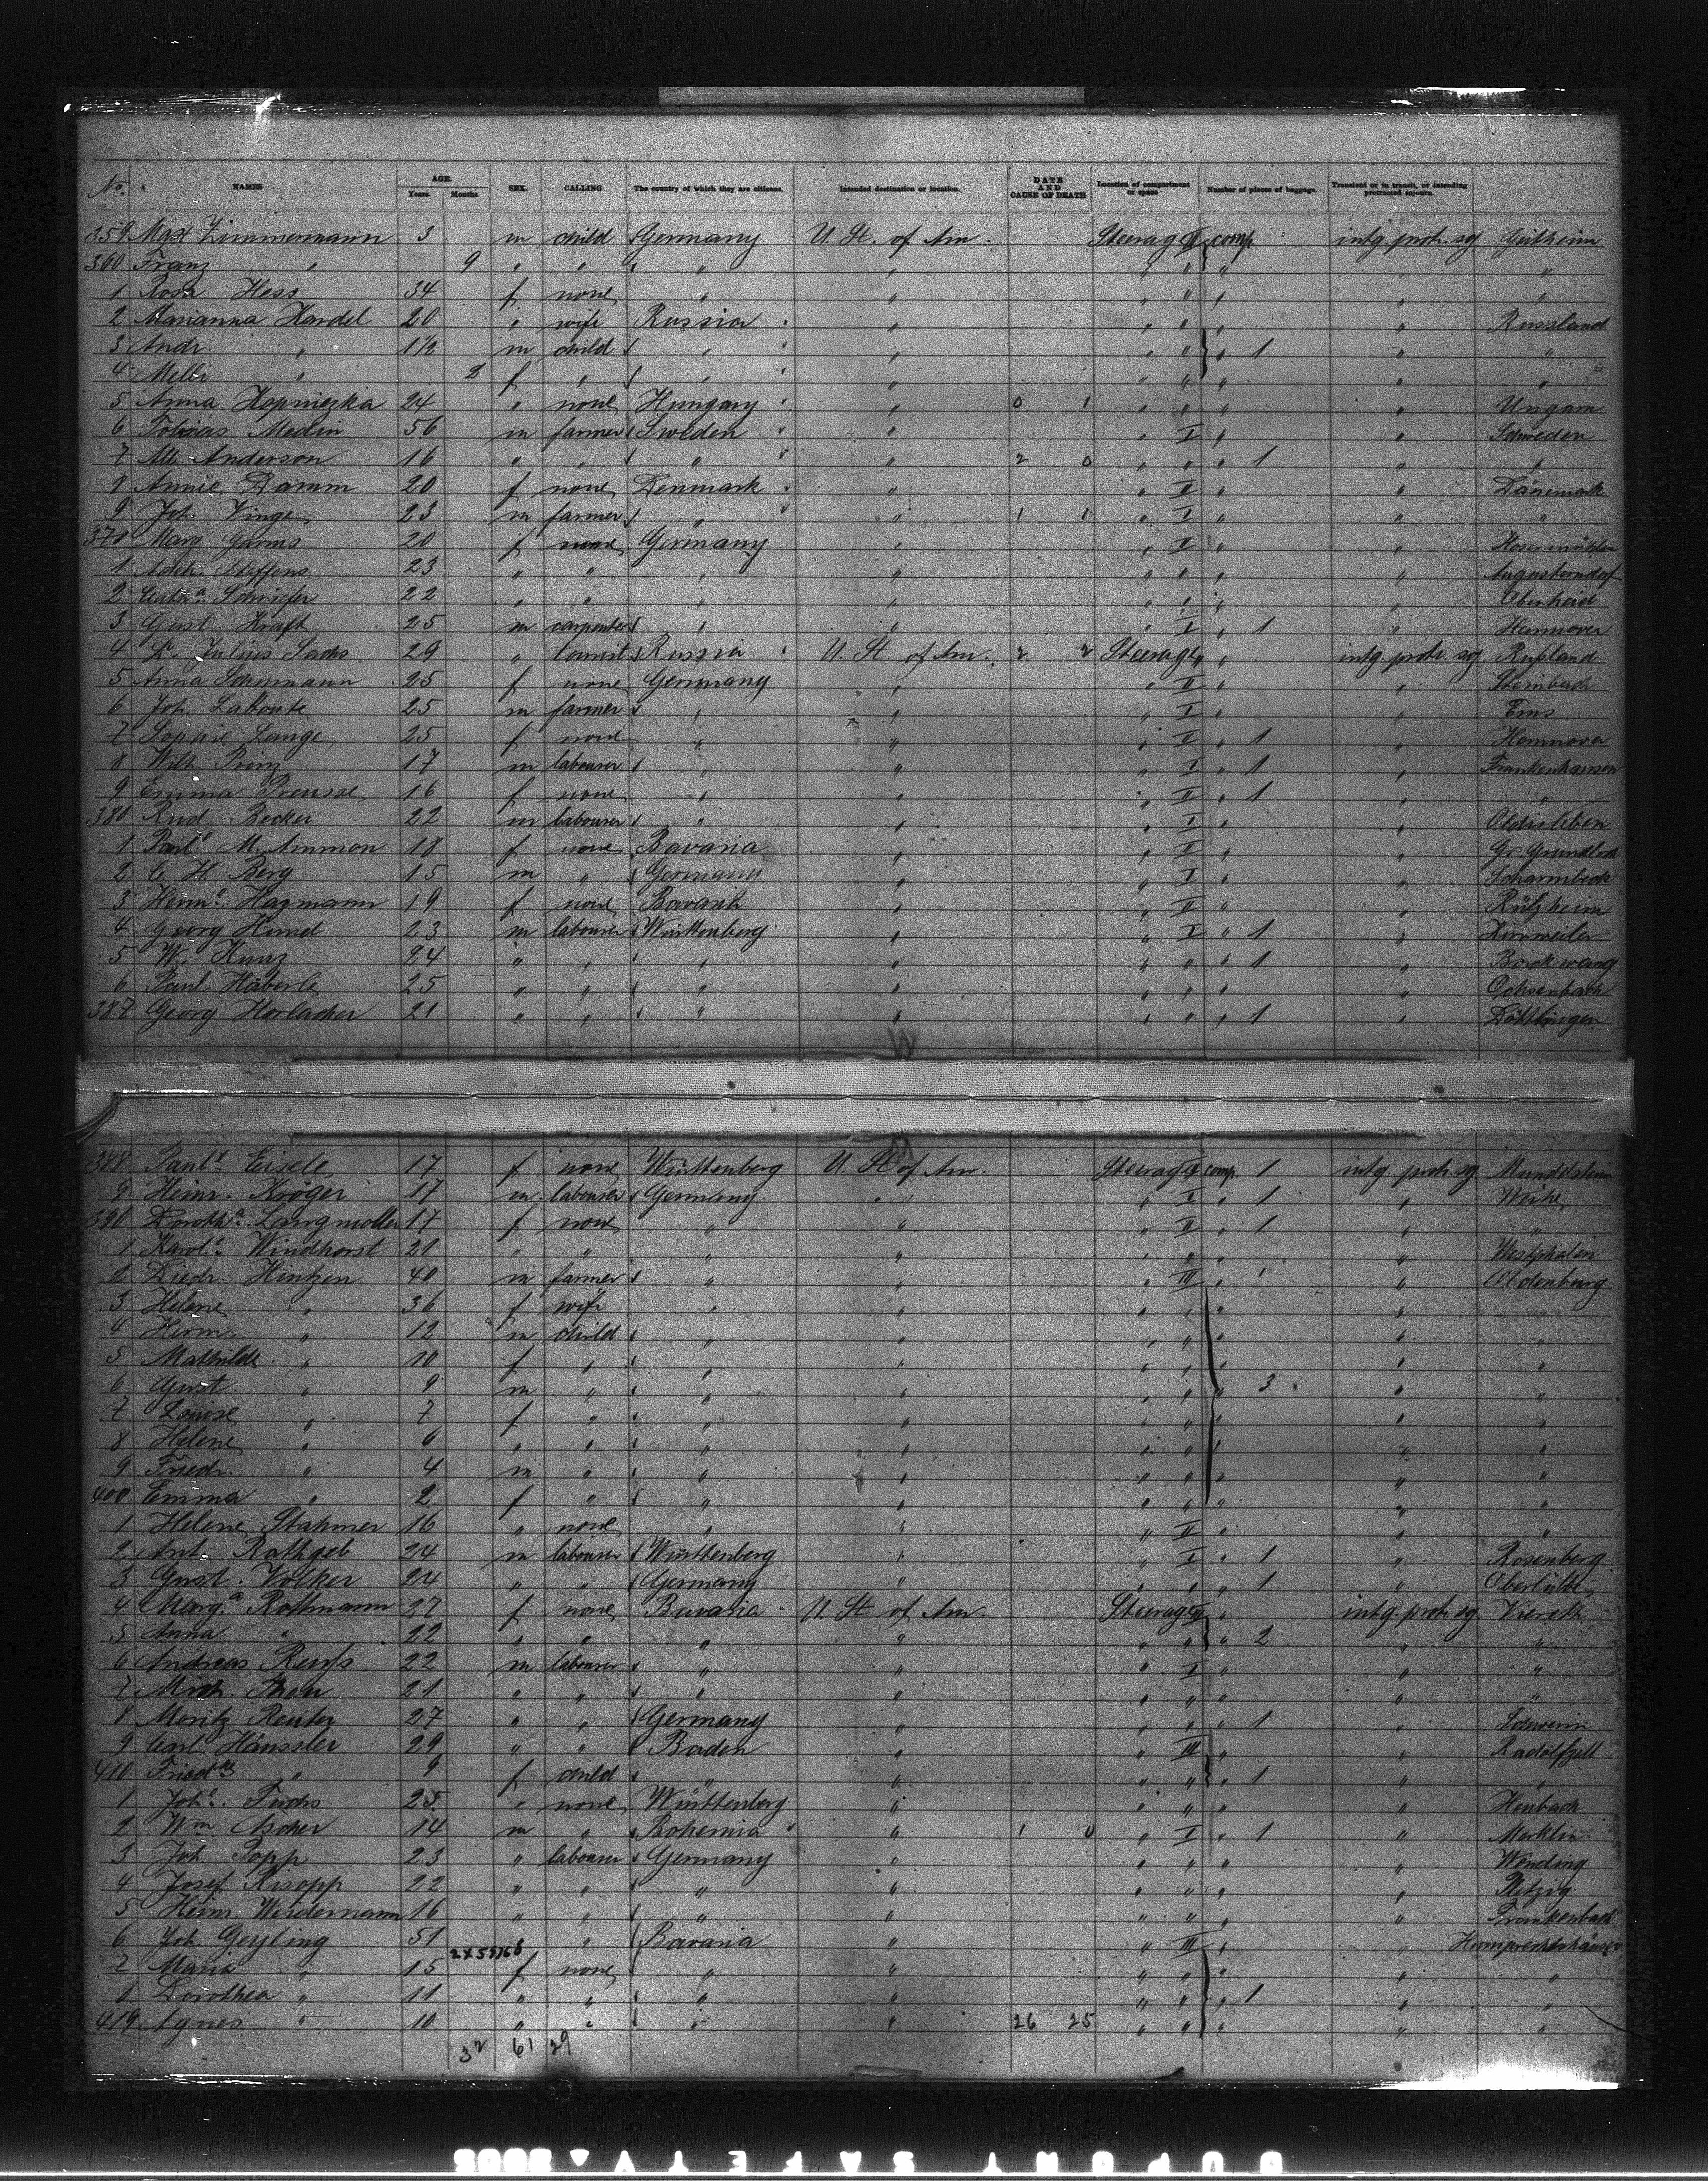 No. NAMES AGE. Years. Months. SEX. CALLING The country of which they are citizens. Intended destination or location. DATE AND CAUSE OF DEATH Location of compartment or space Number of pieces of baggage. Transient or in transit, or intending protracted sojourn.
359 Max Zimmermann 3 m child Germany U. St. of Am. Steerag II comp intg. protr. sg Geitheim
360 Franz " 9 " " " " " " " " "
1 Rosa Hess 34 f none " " " " " " "
2 Marianna Handel 20 " wife Russia " " " " " Russland
3 Andr. " 1½ m child " " " " " 1 " "
4 Melli " 2 f " " " " " " " "
5 Anna Kopniezka 24 " none Hungary " 0 1 " " " " Ungarn
6 Tobias Medin 56 m farmer Sweden " " I " " Schweden
7 Alb. Anderson 16 " " " " 2 0 " " " 1 " "
8 Annie Damm 20 f none Denmark " " II " " Dänemark
9 Joh. Vinge 23 m farmer " " 1 1 " I " " "
370 Marg. Garms 20 f none Germany " " II " "
1 Adch. Steffens 23 " " " " " " " " Augustendorf
2 Cathª. Schriefer 22 " " " " " " " " Oberheid
3 Gust. Kraft 25 m carpenter " " " I " 1 " Hannover
4 Dr. Julius Sachs 29 " tourist Russia U. St. of Am. 2 2 Steerage " " intg. protr. sg Rußland
5 Anna Schumann 25 f none Germany " " II " " Steinbach
6 Joh. Laboute 25 m farmer " " " I " " Ems
7 Sophie Lange 25 f none " " " II " 1 " Hannover
8 Wilh. Prinz 17 m labourer " " " I " 1 " Frankenhausen
9 Emma Preusse 16 f none " " " II " 1 " "
380 Rud. Becker 22 m labourer " " " I " " Oldisleben
1 Paulª M. Ammon 18 f none Bavaria " " II " " Gr. Grundlach
2 C. H. Berg 15 m " Germany " " I " " Scharmbeck
3 Hermª. Hagmann 19 f none Bavaria " " II " " Rülzheim
4 Georg Hund 23 m labourer Württenberg " " I " 1 "
5 W. Kunz 24 " " " " " " " 1 " Backwang
6 Paul Häberle 25 " " " " " " " " Ochsenbach
387 Georg Horlacher 21 " " " " " " " 1 " Döttlingen
388 Paulª. Eisele 17 f none Württenberg U. St. of Am. Steerag II comp. 1 intg. protr. sg Mundelsheim
9 Heinr. Kröger 17 m labourer Germany " " I " 1 " Weihe
390 Dorothª. Langmoller 17 f none " " " II " 1 " "
1 Karolª. Windhorst 21 " " " " " " " " Westphalen
2 Diedr. Hintzen 40 m farmer " " " III " 1 " Oldenburg
3 Helene " 36 f wife " " " " " " "
4 Herm. " 12 m child " " " " " " "
5 Mathilde " 10 f " " " " " " "
6 Gust. " 9 m " " " " " " 3 " "
7 Louise " 7 f " " " " " " "
8 Helene " 6 " " " " " " " " "
9 Friedr. " 4 m " " " " " " " "
400 Emma " 2 f " " " " " " " "
1 Helene Stahmer 16 " none " " " II " " "
2 Ant. Rathgeb 24 m labourer Württenberg " " I " 1 " Rosenberg
3 Gust. Völker 24 " " Germany " " " " 1 " Oberlübbe
4 Margª. Rothmann 27 f none Bavaria U. St. of Am. Steerag II " intg. protr. sg Viereth
5 Anna " 22 " " " " " " " 2 " "
6 Andreas Reuß 22 m labourer " " " I " " "
7 Mich. Then 21 " " " " " " " " "
8 Moritz Reuter 27 " " Germany " " " " 1 " Schwerin
9 Carl Häussler 29 " " Baden " " III " " Radolfzell
410 Friedke " 9 f child " " " " " 1 " "
1 Johª. Fuchs 25 " none Württenberg " " " " " Heubach
2 Wm Ascher 14 m " Bohemia " 1 0 " I " 1 " Merklin
3 Joh. Popp 23 " labourer Germany " " " " " Wending
4 Josef Risopp 22 " " " " " " " " Pletzig
5 Herm. Weidermann 16 " " " " " " " " Frankenbach
6 Joh. Geyling 51 " " Bavaria " " III " "
7 Maria " 15 f none " " " " " " "
8 Dorothea " 11 " " " " " " " 1 " "
419 Agnes " 10 " " " " 26 25 " " " " "
32 61 29
DUPONT SAFETY